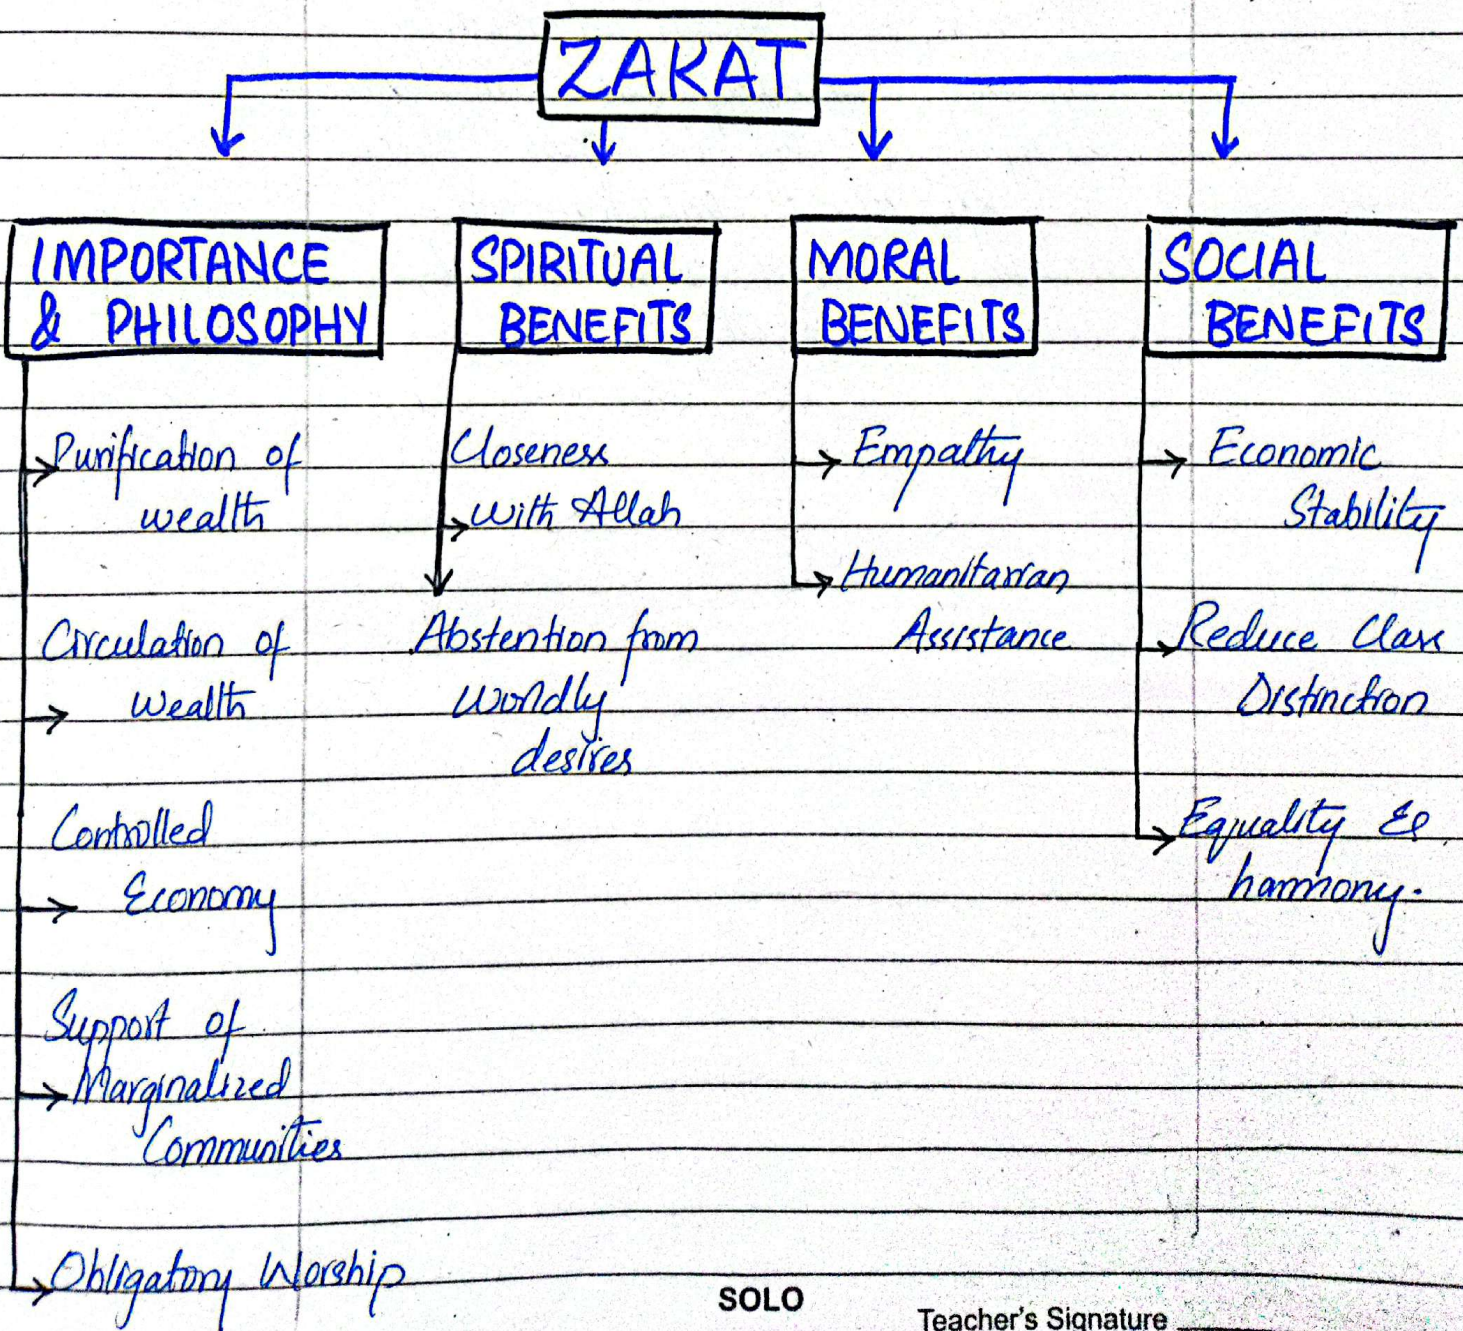 ZAKAT
IMPORTANCE
& PHILOSOPHY
Purification of
wealth
Circulation of
Wealth
Controlled
Economy
Support of
Marginalized
Communities
Obligatory Worship
SPIRITUAL
BENEFITS
Closeness
with Allah
Abstention from
worldly
desires
MORAL
BENEFITS
Empathy
Humanitarian
Assistance
SOCIAL
BENEFITS
Economic
Stability
Reduce Class
Distinction
Equality &
harmony.
SOLO
Teacher's Signature